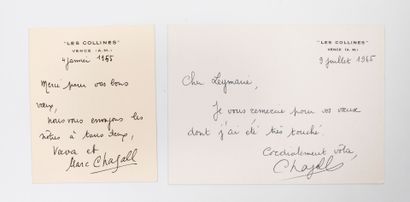 "LES COLLINES"
VENCE (A.M.)
4 janvier 1955
Merci pour vos bons
vœux,
nous vous envoyons les
nôtres à tous deux,
Vava et
Marc Chagall
"LES COLLINES"
VENCE (A.M.)
9 juillet 1965
Cher Leymarie,
Je vous remercie pour vos vœux
dont j'ai été très touché.
Cordialement vôtre,
Chagall